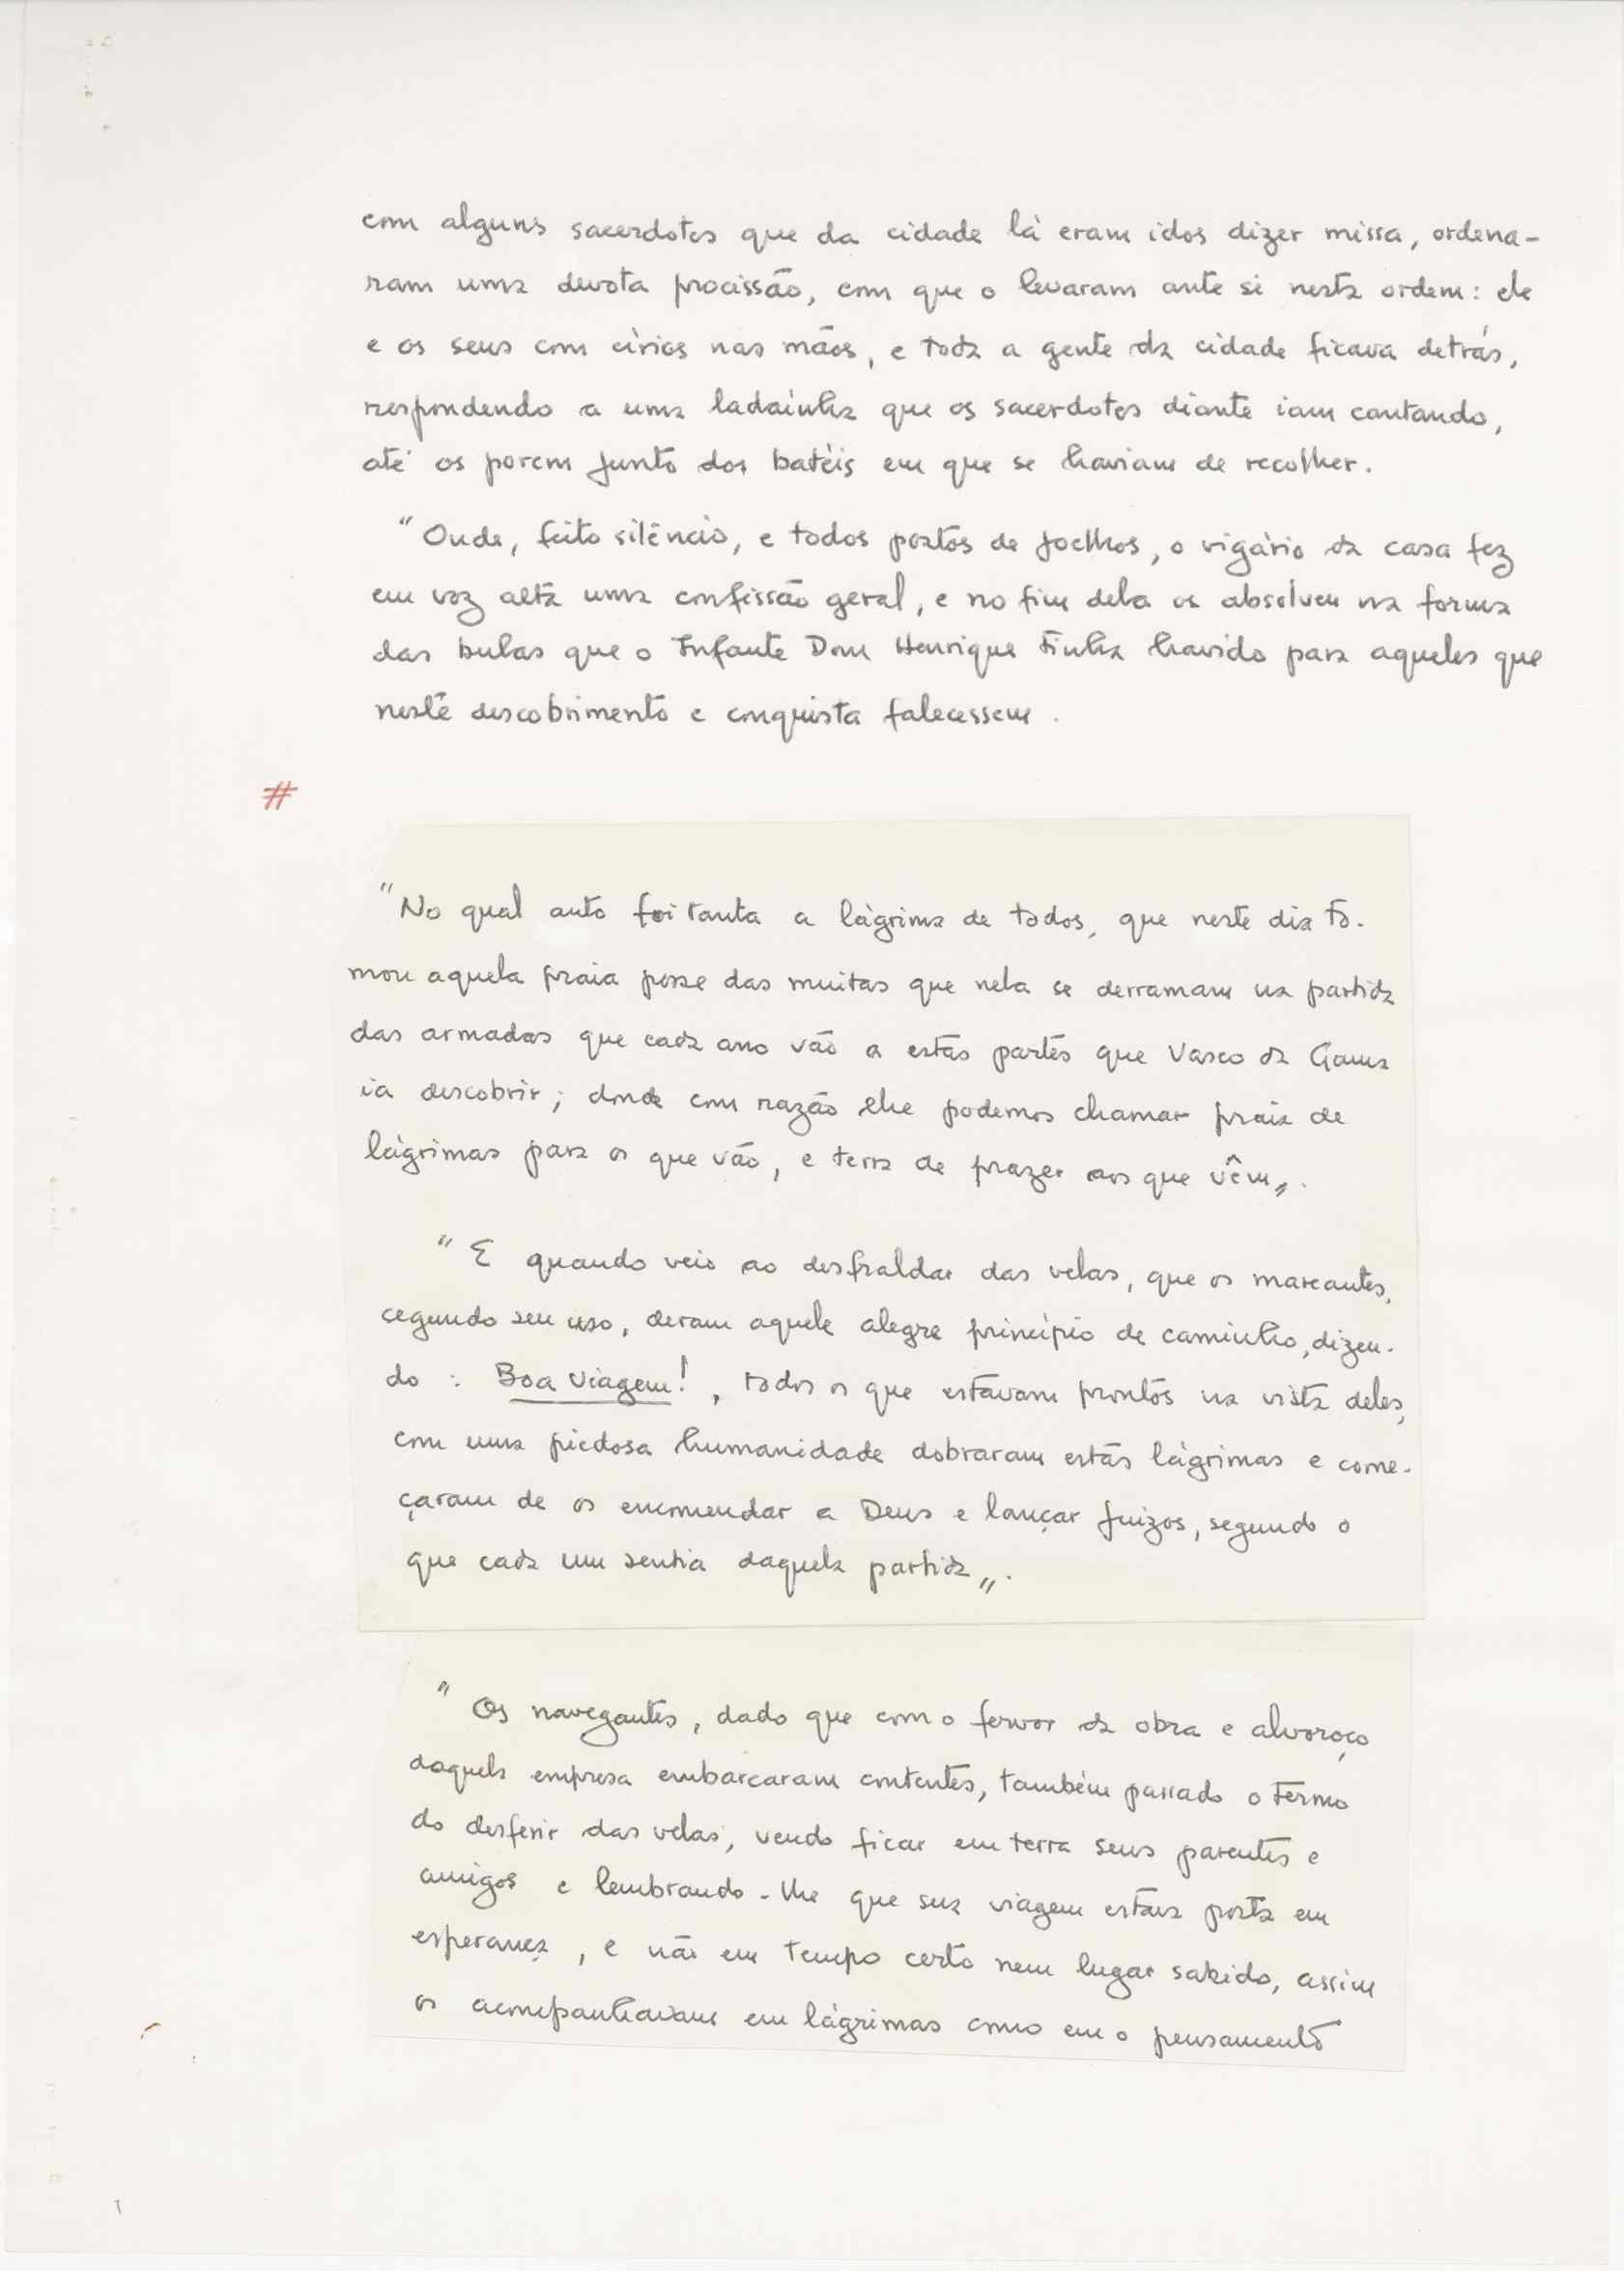 com alguns sacerdotes que da cidade là eram idos dizer missa, ordena-
ram uma devota procissão, com que o levaram ante si nesta ordem: ele
e os seus com círios nas mãos, e toda a gente da cidade ficava detrás,
respondendo a uma ladaínha que os sacerdotes diante iam cantando,
até os porem junto dos batéis em que se haviam de recolher.
"Onde, feito silêncio, e todos postos de joelhos, o vigário da casa fez
em voz alta uma confissão geral, e no fim dela os absolveu na forma
das bulas que o Infante Dom Henrique tinha havido para aqueles que
neste descobrimento e conquista falecessem.
#
"No qual auto foi tanta a lágrima de todos, que neste dia to-
mou aquela praia posse das muitas que nela se derramam na partida
das armadas que cada ano vão a estas partes que Vasco da Gama
ia descobrir; donde com razão lhe podemos chamar praia de
lágrimas para os que vão, e terra de prazer aos que vêm„.
"E quando veio ao desfraldar das velas, que os mareantes,
segundo seu uso, deram aquele alegre princípio de caminho, dizen-
do: Boa viagem!, todos os que estavam prontos na vista deles,
com uma piedosa humanidade dobraram estas lágrimas e come-
çaram de os encomendar a Deus e lançar juizos, segundo o
que cada um sentia daquela partida„.
"Os navegantes, dado que com o fervor da obra e alvoroço
daquela empresa embarcaram contentes, também passado o termo
do desferir das velas, vendo ficar em terra seus parentes e
amigos e lembrando-lhe que sua viagem estava posta em
esperança, e não em tempo certo nem lugar sabido, assim
os acompanhavam em lágrimas como em o pensamento